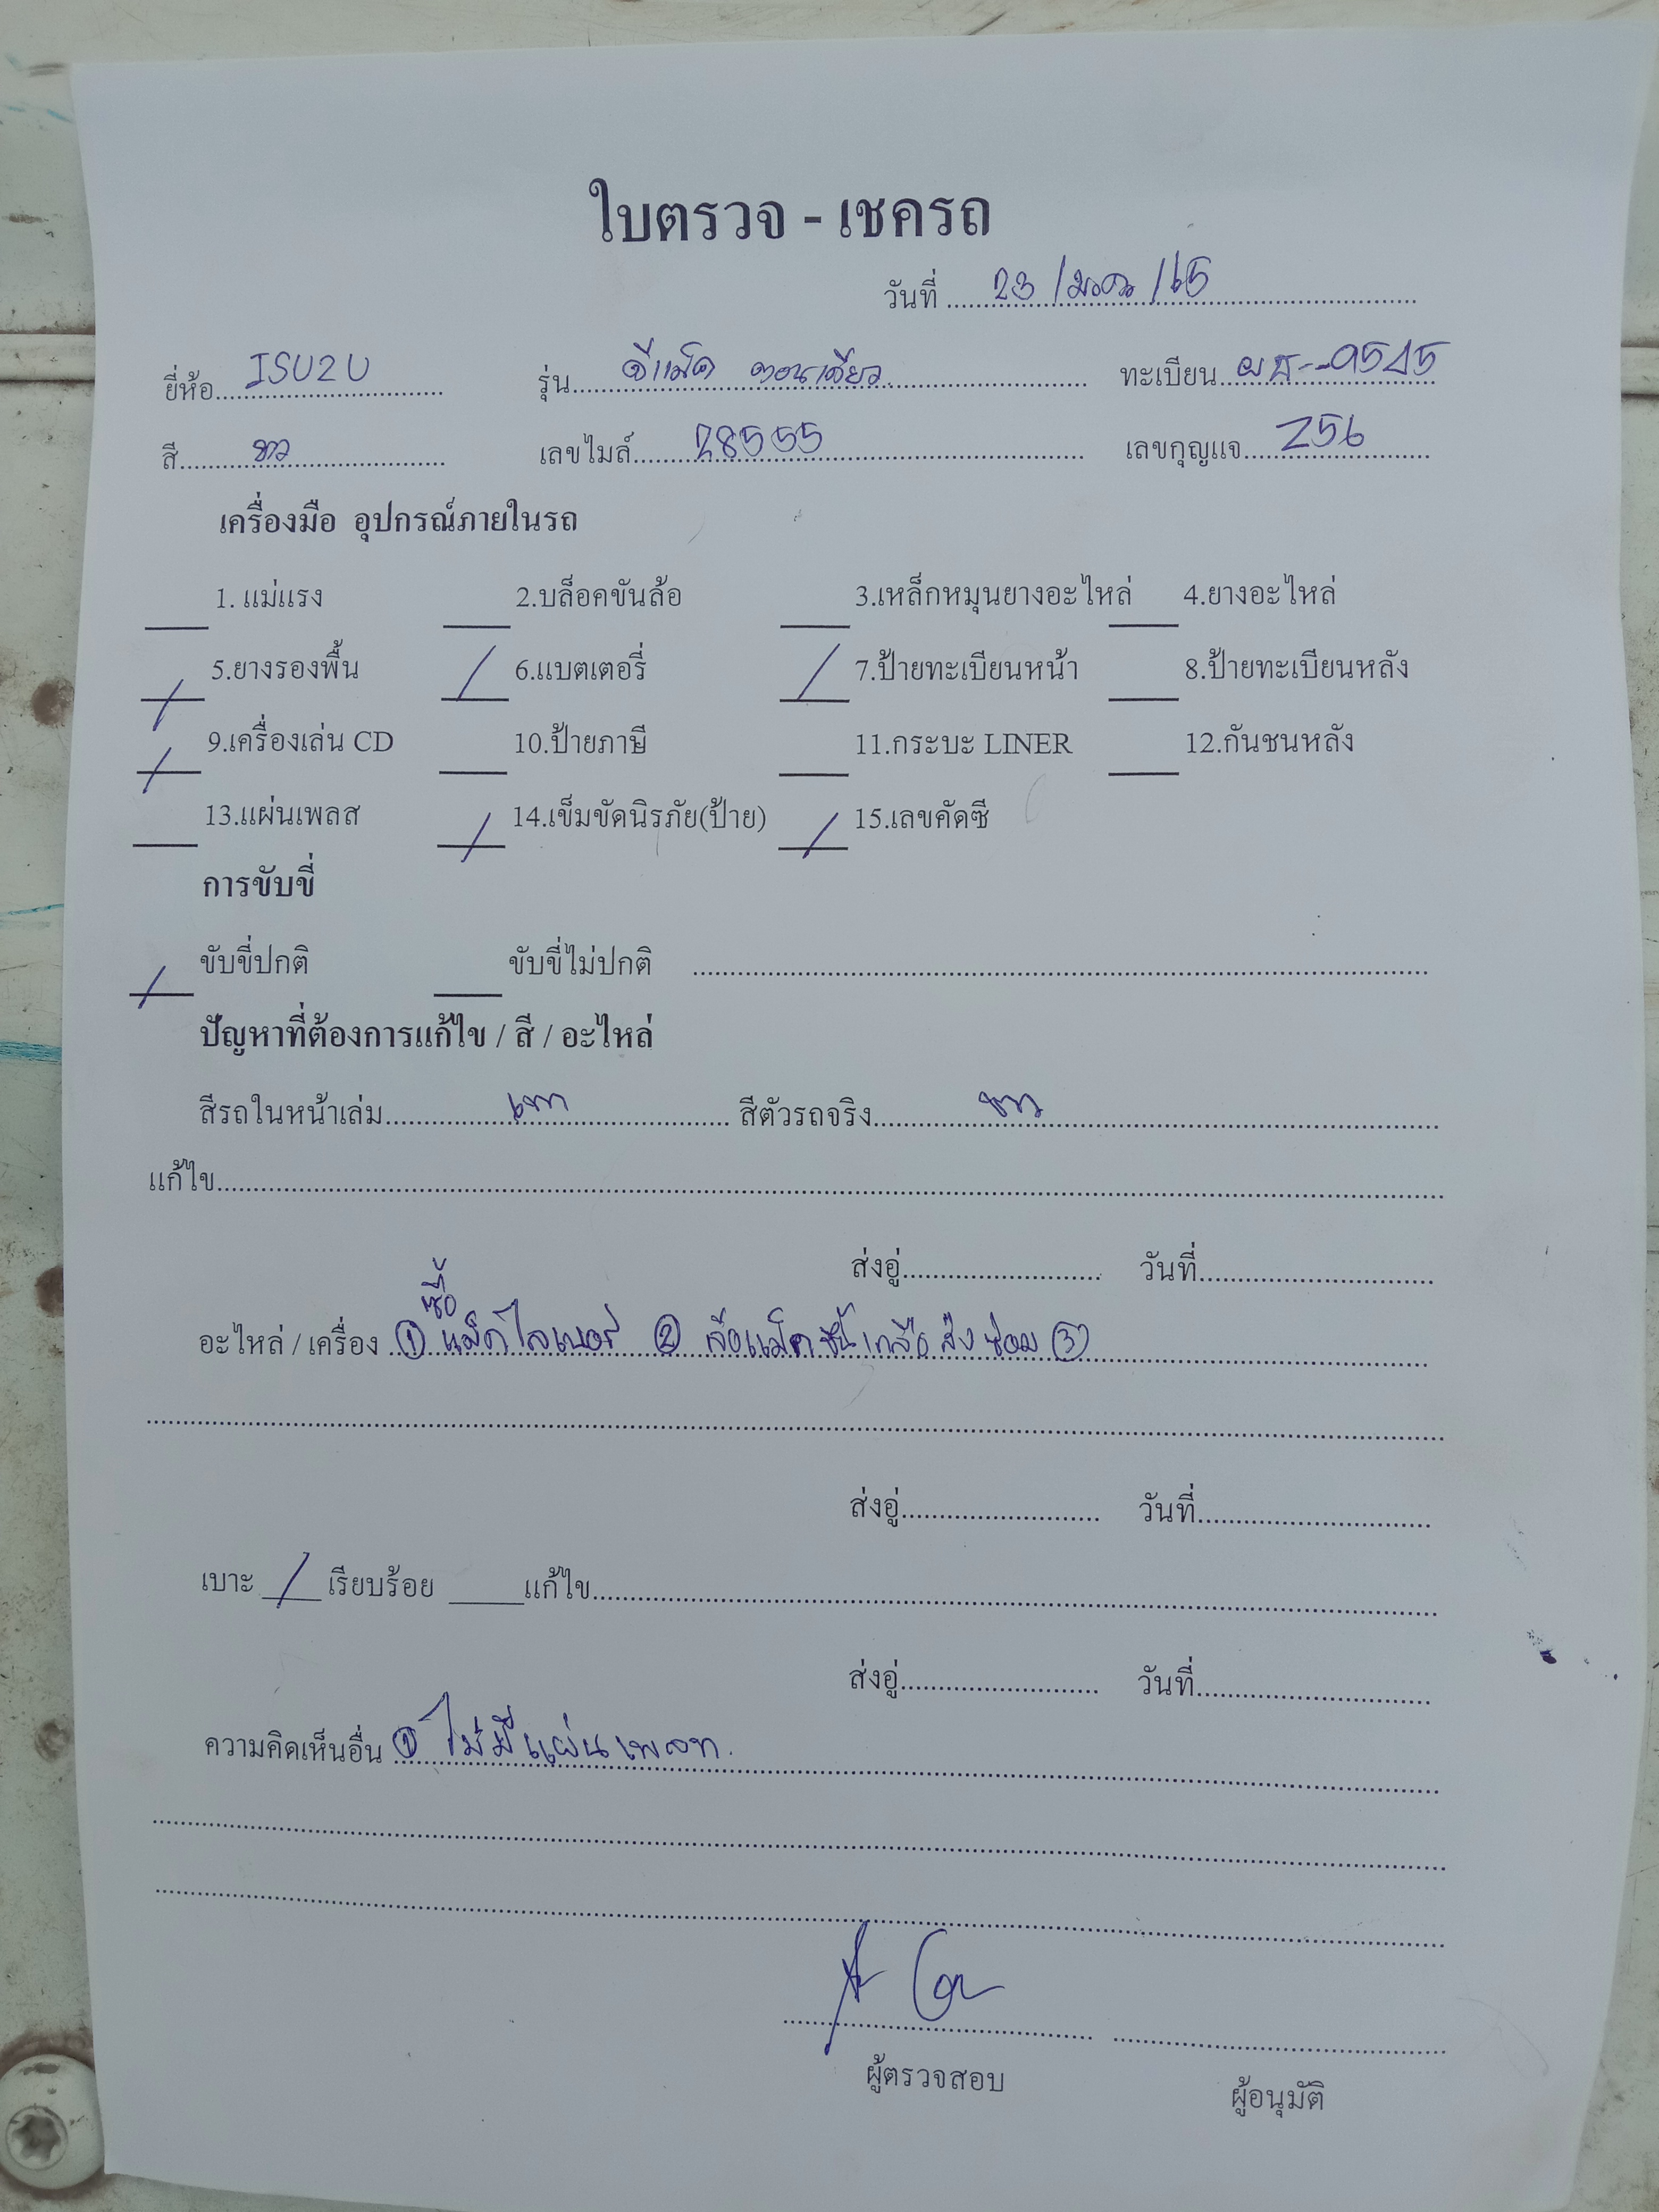 ใบตรวจ - เชครถ
วันที่ 23 / มีนาคม / 65
ยี่ห้อ ISUZU รุ่น ดีแม็ค ตอนเดียว ทะเบียน ผฮ-9515
สี ขาว เลขไมล์ 28555 เลขกุญแจ Z56
เครื่องมือ อุปกรณ์ภายในรถ
1. แม่แรง 2.บล็อคขันล้อ 3.เหล็กหมุนยางอะไหล่ 4.ยางอะไหล่
/ 5.ยางรองพื้น / 6.แบตเตอรี่ / 7.ป้ายทะเบียนหน้า 8.ป้ายทะเบียนหลัง
/ 9.เครื่องเล่น CD 10.ป้ายภาษี 11.กระบะ LINER 12.กันชนหลัง
13.แผ่นเพลส / 14.เข็มขัดนิรภัย(ป้าย) / 15.เลขคัดซี
การขับขี่
/ ขับขี่ปกติ ขับขี่ไม่ปกติ
ปัญหาที่ต้องการแก้ไข / สี / อะไหล่
สีรถในหน้าเล่ม เทา สีตัวรถจริง ขาว
แก้ไข
ส่งอู่ วันที่
อะไหล่ / เครื่อง ① ซื้อ แม็คไลเนอร์ ② ล้อแม็คขี้เกลือ ส่งซ่อม ③
ส่งอู่ วันที่
เบาะ / เรียบร้อย แก้ไข
ส่งอู่ วันที่
ความคิดเห็นอื่น ① ไม่มีแผ่นเพลท
ผู้ตรวจสอบ ผู้อนุมัติ